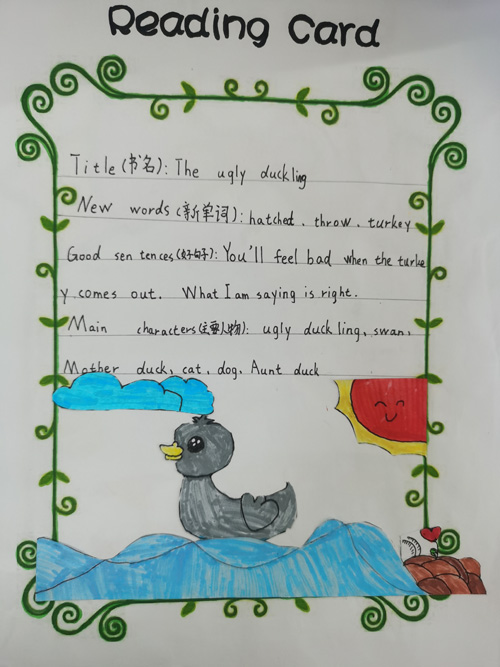 Reading Card
Title(书名): The ugly duckling
New words(新单词): hatched、throw、turkey
Good sentences(好句子): You'll feel bad when the turke
y comes out. What I am saying is right.
Main characters(主要人物): ugly duckling、swan、
Mother duck、cat、dog、Aunt duck